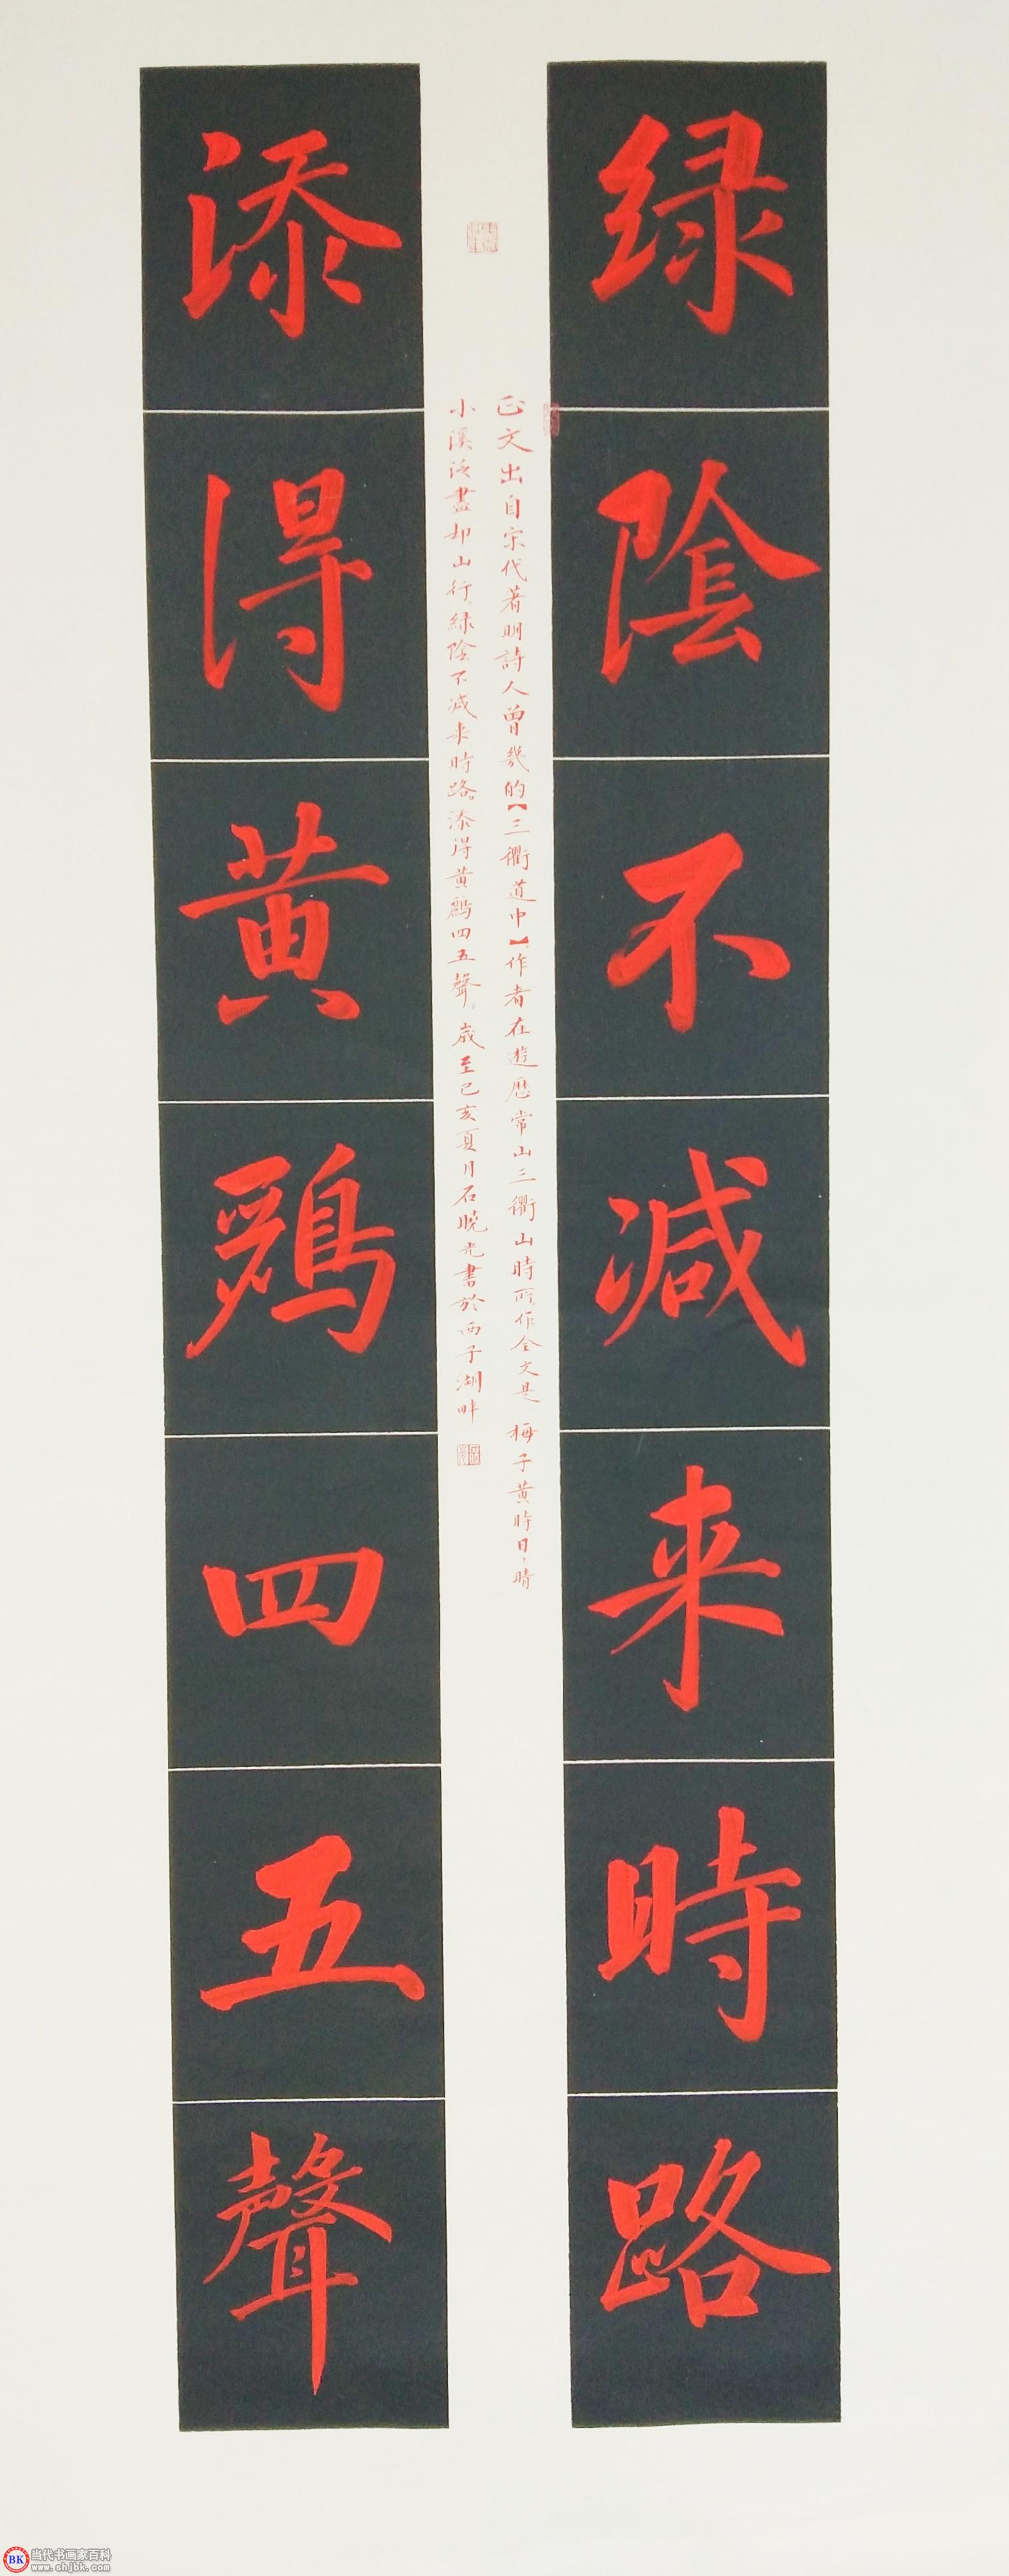 绿陰不減来時路
添得黄鸝四五聲
正文出自宗代著明詩人曾幾的【三衢道中】作者在遊歷常山三衢山時所作全文是 梅子黄時日:晴
小溪泛盡却山行,緑陰不減来時路。添得黄鸝四五聲。歲至己亥夏月石曉光書於西子湖畔
BK 当代书画家百科
www.shjbk.com